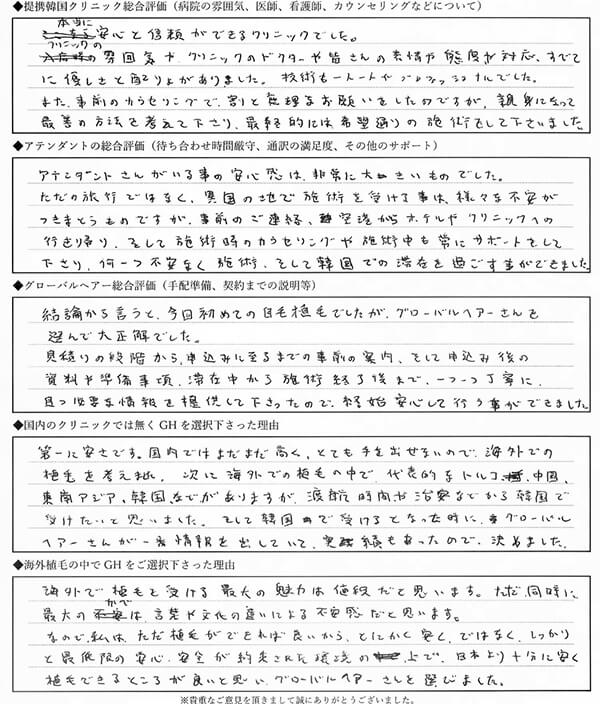 ◆提携韓国クリニック総合評価（病院の雰囲気、医師、看護師、カウンセリングなどについて）
本当に
安心と信頼ができるクリニックでした。
クリニックの
雰囲気や、クリニックのドクターや皆さんの表情や態度や対応、すべて
に優しさと配りょがありました。技術も一人一人がプロフェッショナルでした。
また、事前のカウセリングで、割と無理なお願いをしたのですが、親身になって
最善の方法を考えて下さり、最終的には希望通りの施術をして下さいました。
◆アテンダントの総合評価（待ち合わせ時間厳守、通訳の満足度、その他のサポート）
アテンダントさんがいる事の安心感は、非常に大きいものでした。
ただの旅行ではなく、異国の地で施術を受ける事は、様々な不安が
つきまとうものですが、事前のご連絡、空港からホテルやクリニックへの
行き帰り、そして施術時のカウセリングや施術中も常にサポートをして
下さり、何一つ不安なく施術、そして韓国での滞在を過ごす事ができました。
◆グローバルヘアー総合評価（手配準備、契約までの説明等）
結論から言うと、今回初めての自毛植毛でしたが、グローバルヘアーさんを
選んで大正解でした。
見積りの段階から、申込みに至るまでの事前の案内、そして申込み後の
資料や準備事項、滞在中から施術終了後まで、一つ一つ丁寧に、
且つ必要な情報を提供して下さったので、終始安心して行う事ができました。
◆国内のクリニックでは無く GH を選択下さった理由
第一に安さです。国内ではまだまだ高く、とても手を出せないので、海外での
植毛を考えました。次に海外での植毛の中で、代表的なトルコ、中国、
東南アジア、韓国などがありますが、渡航時間や治安などから韓国で
受けたいと思いました。そして韓国で受けるとなった時に、グローバル
ヘアーさんが一番情報を出していて、実績もあったので、決めました。
◆海外植毛の中で GH をご選択下さった理由
海外で植毛を受ける最大の魅力は値段だと思います。ただ、同時に
かべ
最大の は、言葉や文化の違いによる不安感だと思います。
なので、私は、ただ植毛ができれば良いから、とにかく安く、ではなく、しっかり
と最低限の安心、安全が約束された環境の上で、日本より十分に安く
植毛できるところが良いと思い、グローバルヘアーさんを選びました。
※貴重なご意見を頂きまして誠にありがとうございました。